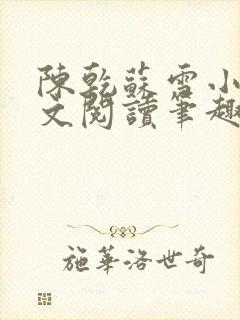 陳乾蘇雪小
文閱讀筆趣
施華洛世奇